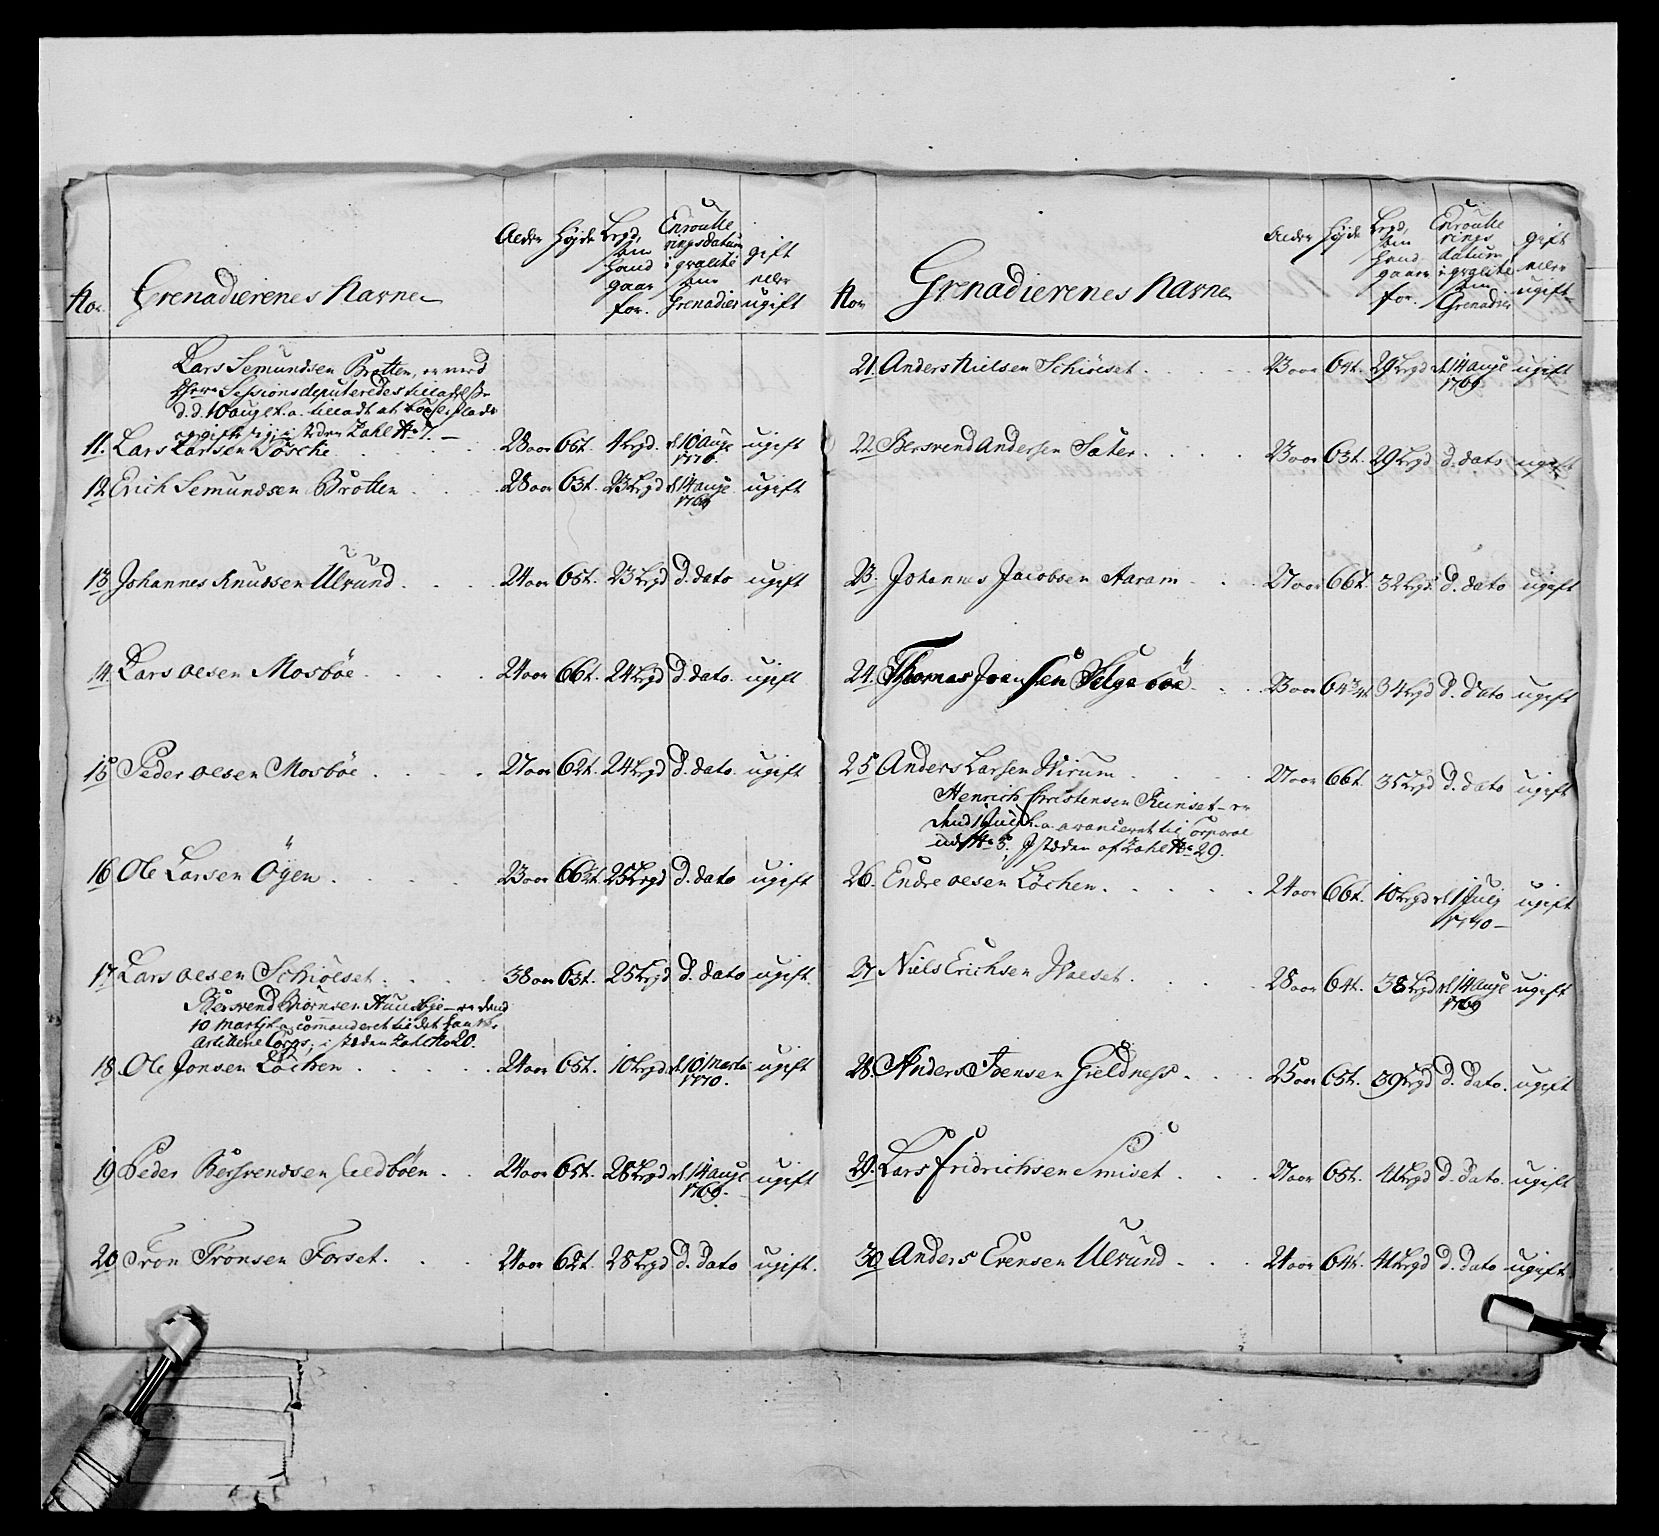 No. Grenadierenes Navne Alder Højde Legd, som hand gaar for. Enroulleringsdatum i qvalité som Grenadier gift eller ugift
Lars Semundsen Bratten, er med
Herr Sessionsdeputeredes tilladelse
d. d. 10 aug. h. a. tilladt at
sig; i steden Zahl No 7. –
11. Lars Larsen Tøsche 28 aar 65 t. 4 Legd. d. 10 aug. 1770. ugift
12 Erich Semundsen Brotten 28 aar 63 t. 23 Legd d. 14 aug. 1769 ugift
13 Johannes Knudsen Ulvund 24 aar 65 t. 23 Legd d. dato ugift
14 Lars Olsen Mosbøe 24 aar 66 t. 24 Legd d. dato. ugift
15 Peder Olsen Mosbøe 27 aar 62 t. 24 Legd d. dato. ugift
16 Ole Larsen Ögen 23 aar 66 t. 25 Legd d. dato ugift
17 Lars Olsen Schiølset 38 aar 63 t. 25 Legd d. dato ugift.
Bersvend Biørnsen er dend
10 Martj h. a. commanderet til det
Artillerie Corps; i steden Zahl No 20.
18. Ole Jonsen Løchen 24 aar 65 t. 10 Legd d. 10 Martii 1770. ugift
19 Peder Bersvendsen 24 aar 65 t. 28 Legd d. 14 aug. 1769. ugift
20 Tron Trønsen Forset. 24 aar 62 t. 28 Legd d. dato ugift.
No. Grenadierenes Navne Alder Højde Legd, som hand gaar for. Enroulleringsdatum, i qvalité som Grenadier gift eller ugift
21. Anders Nielsen Schiølset 23 aar 64 t. 29 Legd d. 14 aug. 1769. ugift
22. Bersvend Andersen Sæter 23 aar 63 t. 29 Legd d. dato ugift
23. Johannes Jacobsen Aaram 27 aar 66 t. 32 Legd. d. dato ugift
24. Thomas Joensen 23 aar 64 3/4 t. 34 Legd d. dato ugift
25 Anders Larsen Wirum 27 aar 66 t. 35 Legd d. dato ugift
Henrich Christensen Runset – er
dend 1 Julj h. a. avanceret til Corporal
ud No 5. I steden af Zahl No 29.
26. Endre Olsen Løchen 24 aar 66 t. 10 Legd d. 1 Julj 1770 – ugift
27 Niels Erichsen Walset 28 aar 64 t. 38 Legd d. 14 aug. 1769 ugift
28. Anders Joensen Gieldness 25 aar 65 t. 39 Legd d. dato. ugift
29. Lars Fridrichsen Smiset 27 aar 65 t. 41 Legd d. dato. ugift
30 Anders Evensen Ulvund 24 aar 64 t. 41 Legd d. dato ugift